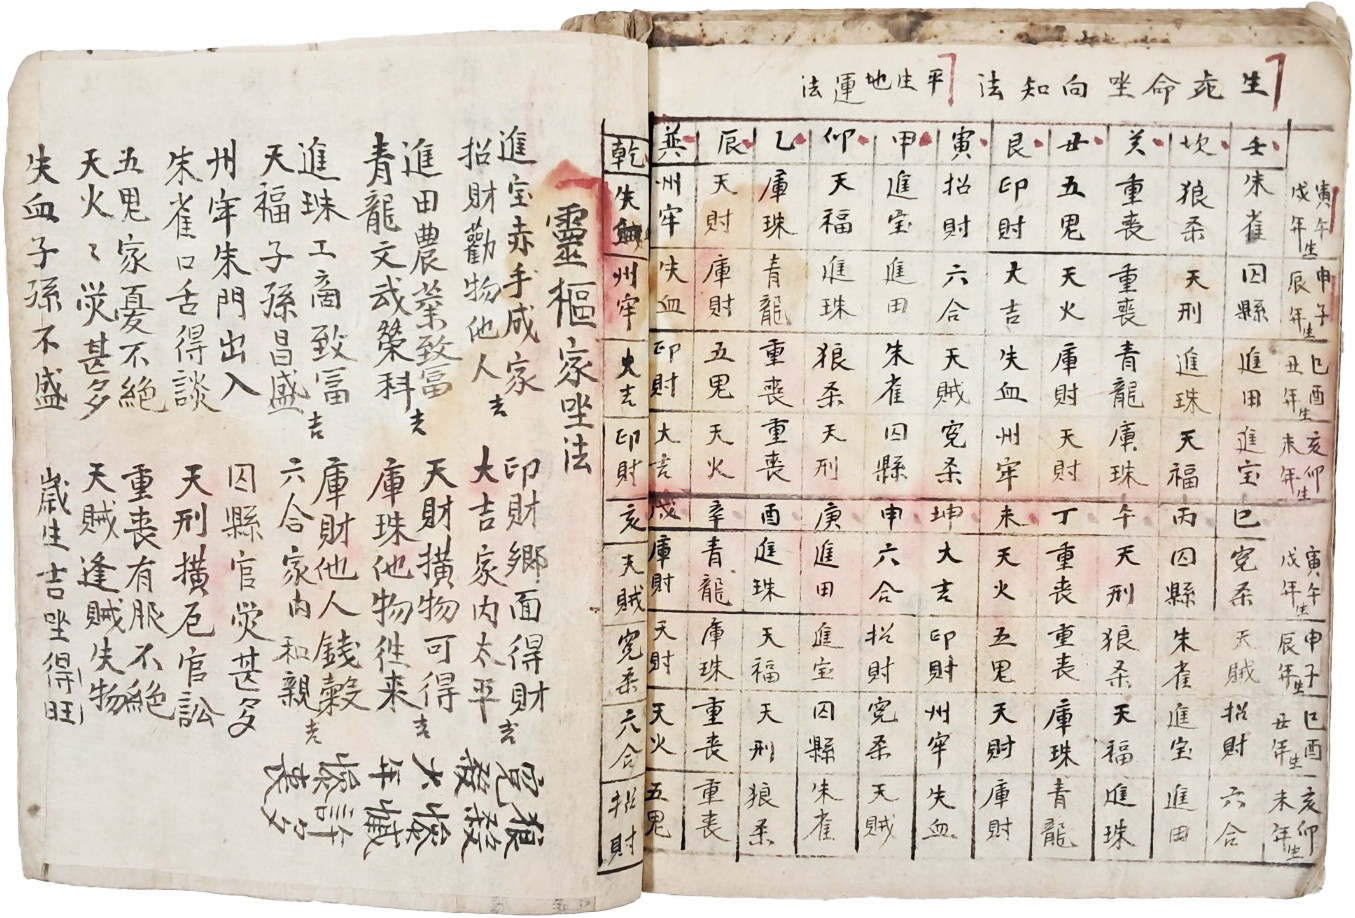 生命坐向知法
平生地運法
壬 坎 癸 丑 艮 寅 甲 卯 乙 辰 巽 乾
寅午戌年生 朱雀 狼杀 重喪 五鬼 印財 招財 進宝 天福 庫珠 天財 州牢 失血
申子辰年生 囚縣 天刑 重喪 天火 大吉 六合 進田 進珠 青龍 庫財 失血 州牢
巳酉丑年生 進田 進珠 青龍 庫財 失血 天賊 朱雀 狼杀 重喪 五鬼 印財 大吉
亥卯未年生 進宝 天福 庫珠 天財 州牢 寃杀 囚縣 天刑 重喪 天火 大吉 印財
巳 丙 午 丁 未 坤 申 庚 酉 辛 戌 亥
寅午戌年生 寃杀 囚縣 天刑 重喪 天火 大吉 六合 進田 進珠 青龍 庫財 天賊
申子辰年生 天賊 朱雀 狼杀 重喪 五鬼 印財 招財 進宝 天福 庫珠 天財 寃杀
巳酉丑年生 招財 進宝 天福 庫珠 天財 州牢 寃杀 囚縣 天刑 重喪 天火 六合
亥卯未年生 六合 進田 進珠 青龍 庫財 失血 天賊 朱雀 狼杀 重喪 五鬼 招財
靈樞家坐法
進宝赤手成家 印財鄉面得財
招財勸物他人吉 大吉家內太平吉
進田農業致富 天財横物可得
青龍文武榮科吉 庫珠他物往来吉
進珠工商致冨 庫財他人錢穀
天福子孫昌盛吉 六合家內和親吉
州牢朱門出入 囚縣官灾甚多
朱雀口舌得談 天刑横厄官訟
五鬼家憂不絕 重喪有服不絕
天火々灾甚多 天賊逢賊失物
失血子孫不盛 歲生吉坐得旺